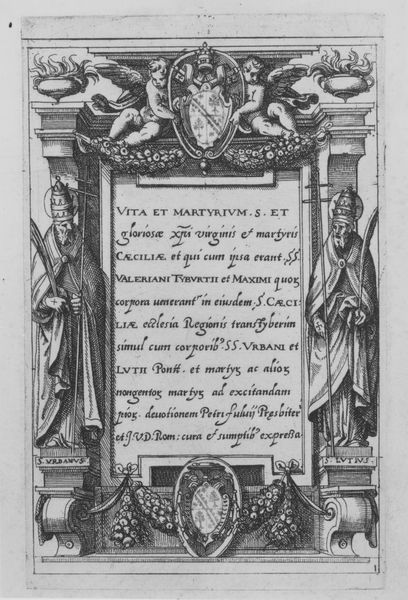 VITA ET MARTYRIVM. S. ET
gloriosæ xp̄i virginis et martyris
CÆCILIÆ et qui cum ipsa erant. SS.
VALERIANI TYBVRTII et MAXIMI quoꝝ
corpora uenerant̃ in eiusdem. S. CÆCI:
LIÆ ecclesia Regionis transtyberim
simul cum corporib.⁹ SS. VRBANI et
LVTII Pontt. et martyꝝ ac alioꝝ
nongentoꝝ martyꝝ ad excitandam
pioꝝ. deuotionem Petri fuluij Præsbiter
et J.V.D. Rom: cura et sumptib.⁹ expressa
S. VRBANVS.
S. LVTIVS.
1